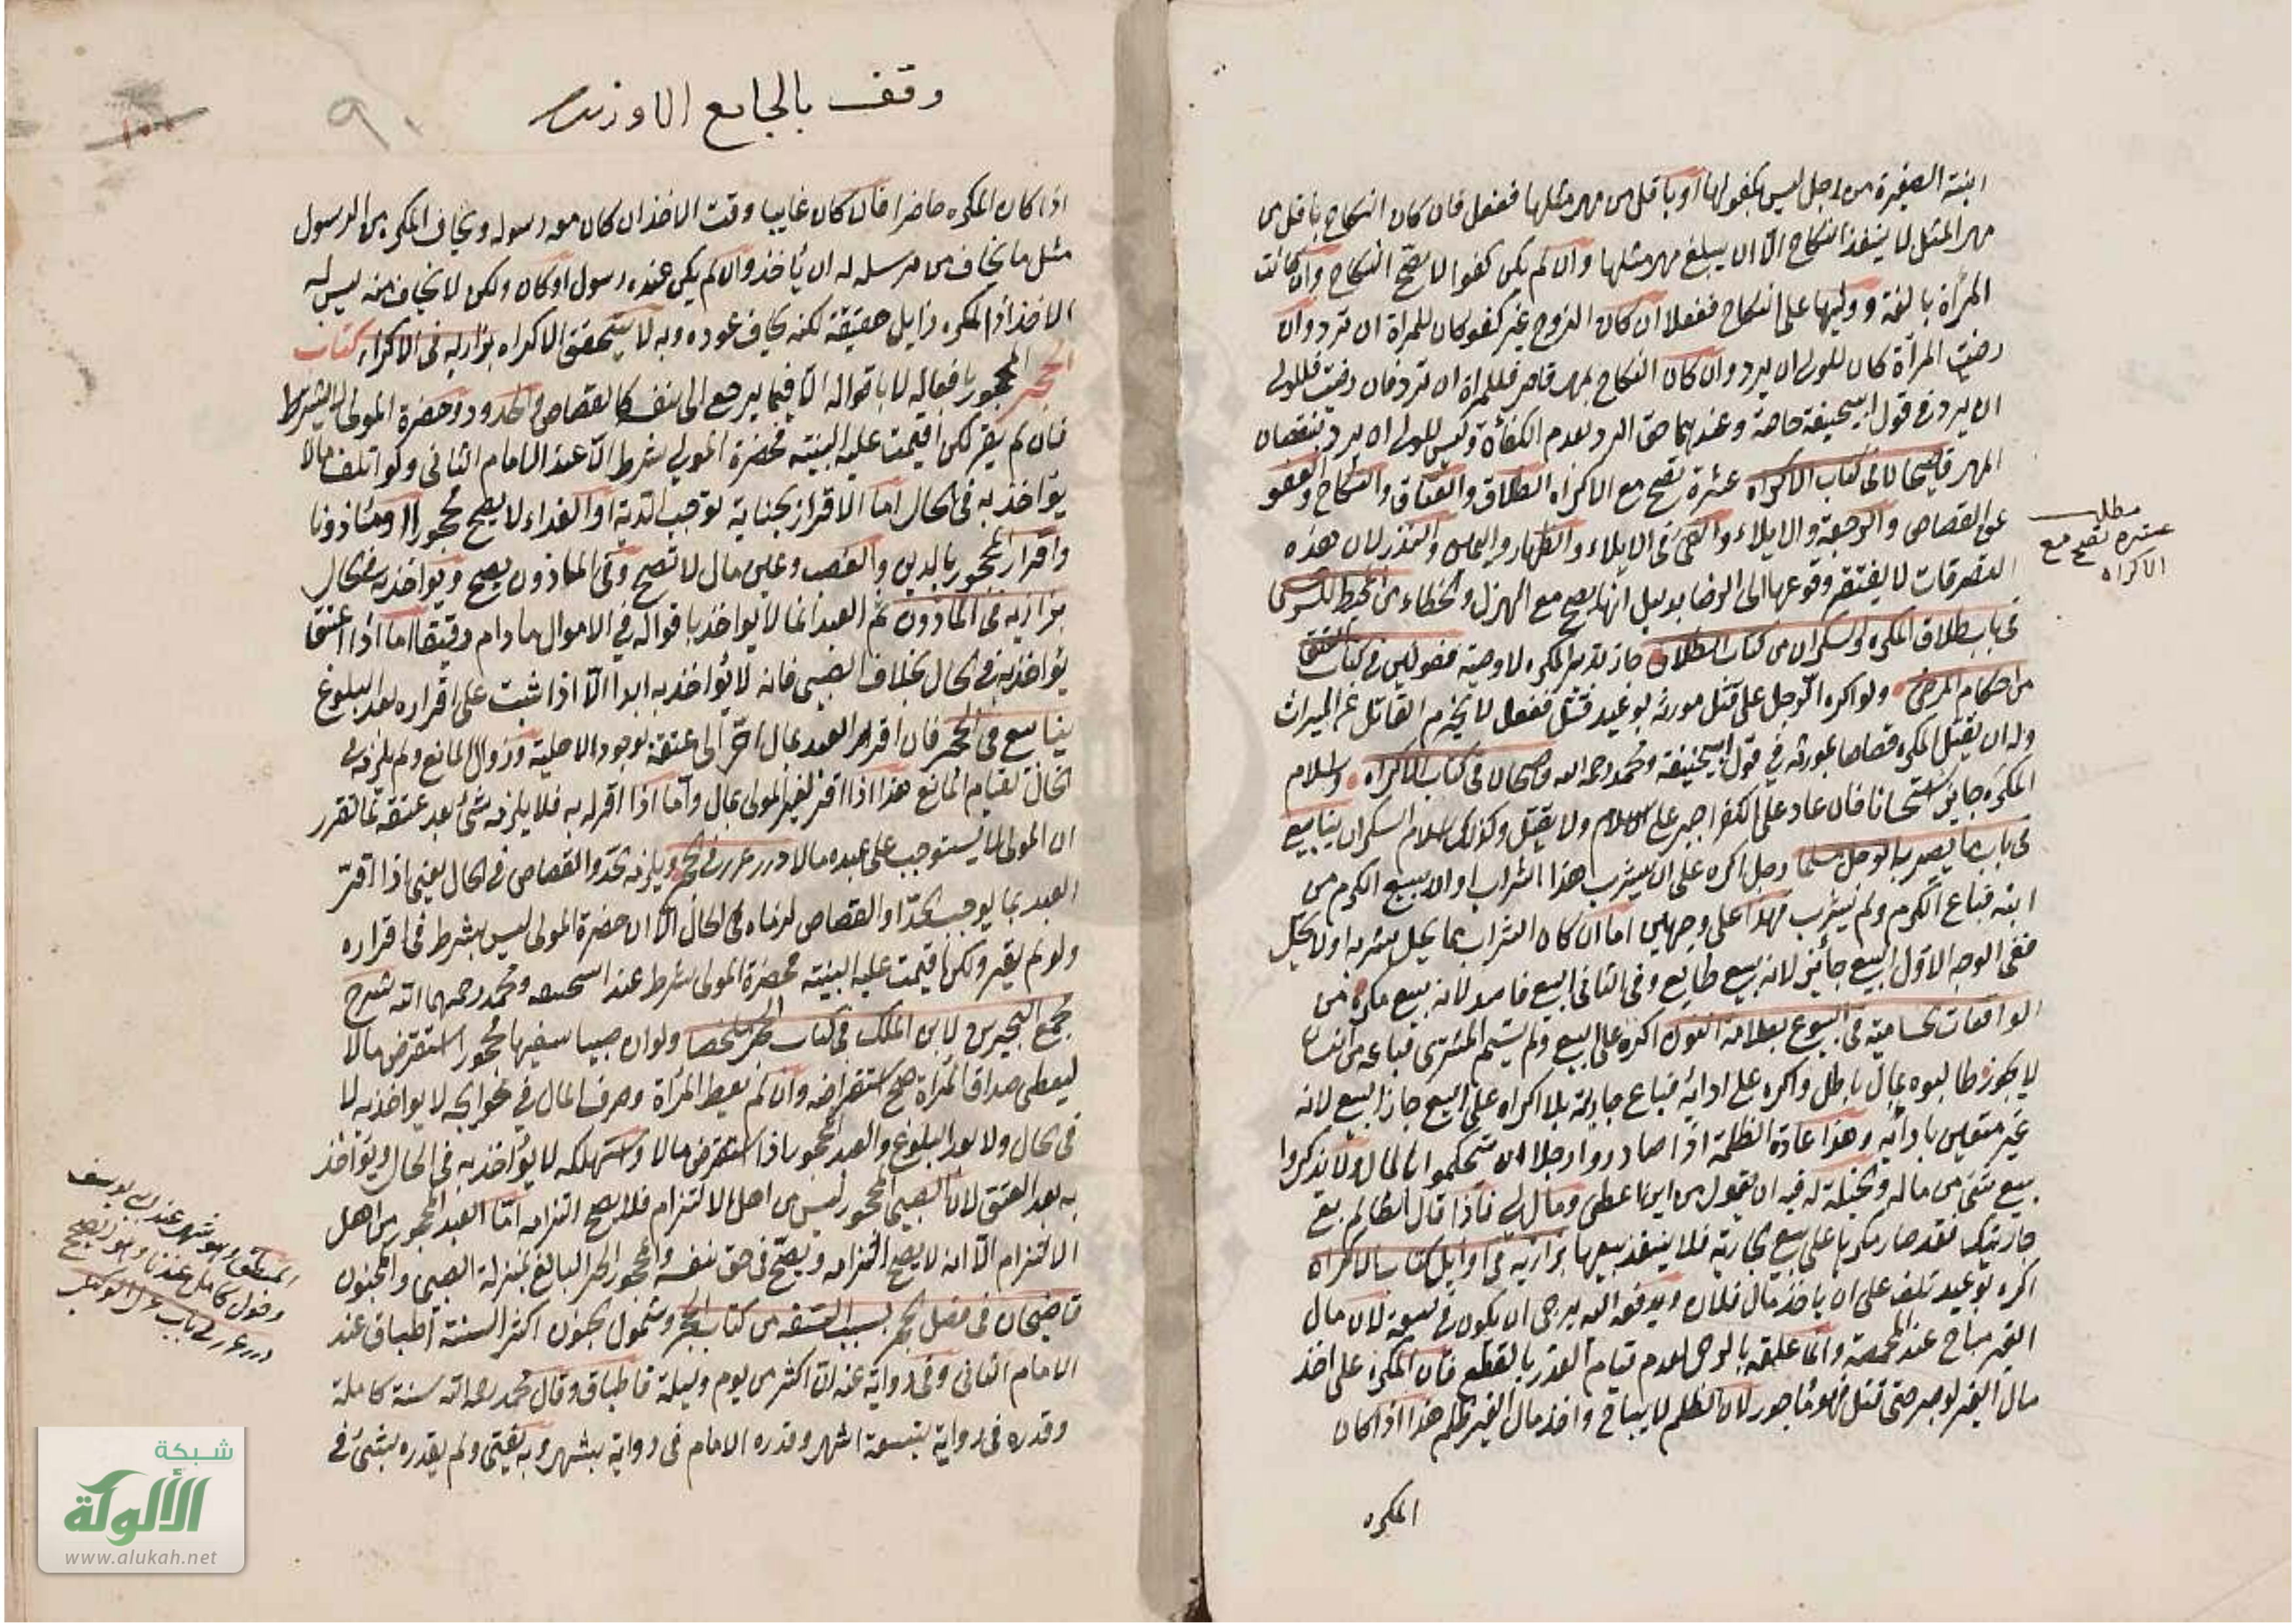 ابنته الصغيرة من رجل ليس بكفو لها او باقل من مهر مثلها ففعل فان كان النكاح باقل من
مهر المثل لا ينفذ النكاح الا ان يبلغ مهر مثلها وان لم يكن كفوا لا يصح النكاح وان كانت
المرأة بالغة ووليها على النكاح ففعلا ان كان الزوج غير كفو كان للمرأة ان ترد وان
رضيت المرأة كان للولى ان يرد وان كان النكاح بمهر قاصر فللمرأة ان ترد فان رضيت فللولى
ان يرد فى قول ابيحنيفة خاصة وعندهما حق الرد لعدم الكفاءة وليس للولى ان يرد بنقصان
المهر قاضيخان فى كتاب الاكراه عشرة تصح مع الاكراه الطلاق والعتاق والنكاح والعفو
عن القصاص والرجعة والايلاء والفئ فى الايلاء والظهار واليمين والنذر لان هذه
التصرفات لا يفتقر وقوعها الى الرضا بدليل انها تصح مع الهزل والخطاء من المحيط للسرخسى
فى باب طلاق المكره والسكران من كتاب الطلاق جاز تدبير المكره لا وصيته فصولين فى كتاب العتق
من احكام المرضى ولو اكره الرجل على قتل مورثه بوعيد قتل ففعل لا يحرم القاتل عن الميراث
وله ان يقتل المكره قصاصا بمورثه فى قول ابيحنيفة ومحمد رحمه الله قاضيخان فى كتاب الاكراه واسلام
المكره جايز استحسانا فان عاد على الكفر اجبر على الاسلام ولا يقتل وكذلك اسلام السكران ينابيع
فى باب ما يصير به الرجل مسلما رجل اكره على ان يشرب هذا الشراب او ان يبيع الكرم من
ابنه فباع الكرم ولم يشرب فهذا على وجهين اما ان كان الشراب مما يحل شربه او لا يحل
ففى الوجه الاول البيع جائز لانه بيع طايع وفى الثانى البيع فاسد لانه بيع مكره من
الواقعات الحسامية فى البيوع بعلامة النون اكره على البيع ولم يسم المشترى فباعه من انسان
لا يجوز طالبوه بمال باطل واكره على ادائه فباع جاريته بلا اكراه على البيع جاز البيع لانه
غير متعين بادائه وهذا عادة الظلمة اذا صادروا رجلا ان يتحكموا بالمال ولا يذكروا
بيع شئ من ماله والحيلة له فيه ان يقول من اين اعطى ومالى لى فاذا قال الظالم بع
جاريتك فقد صار مكرها على بيع الجارية فلا ينفذ بيعها بزازية فى اوايل كتاب الاكراه
اكره بوعيد تلف على ان ياخذ مال فلان ويدفعه اليه يرجى ان يكون فى سعة لان مال
الغير مباح عند المخمصة وانما علقه بالرجاء لعدم قيام العذر بالقطع فان المكره على اخذ
مال الغير لو صبر حتى قتل فهو مأجور لان الظلم لا يباح واخذ مال الغير ظلم هذا اذا كان
المكره
مطلب
عشرة تصح مع
الاكراه
وقف بالجامع
٩٠
اذا كان المكره حاضرا فان كان غايبا وقت الاخذ ان كان معه رسوله ويخاف المكره من الرسول
مثل ما يخاف من مرسله له ان يأخذ وان لم يكن عنده رسول او كان ولكن لا يخاف منه ليس له
الاخذ اذ المكره زايل حقيقة لكنه يخاف عوده وبه لا يتحقق الاكراه بزازية فى الاكراه كتاب
الحجر المحجور بافعاله لا باقواله الا فيما يرجع الى نفسه كالقصاص والحدود وحضرة المولى لا يشترط
فان لم يقر لكن اقيمت عليه البينة فحضرة المولى شرط الا عند الامام الثانى ولو اتلف مالا
يؤاخذ به فى الحال اما الاقرار بجناية توجب الدية او الفداء لا يصح محجورا او مأذونا
واقرار المحجور بالدين والغصب وعين مال لا تصح وفى المأذون يصح ويؤاخذ به فى الحال
بزازية فى المأذون ثم العبد انما لا يؤاخذ باقواله فى الاموال ما دام رقيقا اما اذا اعتق
يؤاخذ به فى الحال بخلاف الصبى فانه لا يؤاخذ به ابدا الا اذا ثبت على اقراره بعد البلوغ
ينابيع فى الحجر فان اقر العبد بمال اخر الى عتقه لوجود الاهلية وزوال المانع ولم يلزمه فى
الحال لقيام المانع هذا اذا اقر لغير المولى بمال واما اذا اقر له به فلا يلزمه شئ بعد عتقه لما تقرر
ان المولى لا يستوجب على عبده مالا درر غرر فى الحجر ويلزمه الحد والقصاص فى الحال يعنى اذا اقر
العبد بما يوجب الحد او القصاص لزماه فى الحال الا ان حضرة المولى ليس بشرط فى اقراره
ولو لم يقر ولكن اقيمت عليه البينة فحضرة المولى شرط عند ابيحنيفه ومحمد رحمهما الله شرح
مجمع البحرين لابن الملك فى كتاب الحجر ملخصا ولو ان صبيا سفيها محجورا استقرض مالا
ليعطى صداق المرأة صح استقراضه وان لم يعط المرأة وصرف المال فى حوايجه لا يؤاخذ به لا
فى الحال ولا بعد البلوغ والعبد المحجور اذا استقرض مالا واستهلكه لا يؤاخذ به فى الحال ويؤاخذ
به بعد العتق لان الصبى المحجور ليس من اهل الالتزام فلا يصح التزامه اما العبد المحجور من اهل
الالتزام الا انه لا يصح التزامه ويصح فى حق نفسه والمحجور الحر البالغ بمنزلة الصبى والمجنون
قاضيخان فى فصل الحجر بسبب السفه من كتاب الحجر وشمول الجنون اكثر السنة اطباق عند
الامام الثانى وفى رواية عنه ان اكثر من يوم وليلة فاطباق وقال محمد رحمه الله سنة كاملة
وقدره فى رواية بتسعة اشهر وقدره الامام فى رواية بشهر وبه يفتى ولم يقدره بشئ فى
المطبق وهو شهر عند ابى يوسف
وحول كامل عند وهو الصحيح
درر غرر فى باب عزل الوكيل
شبكة
الألوكة
www.alukah.net